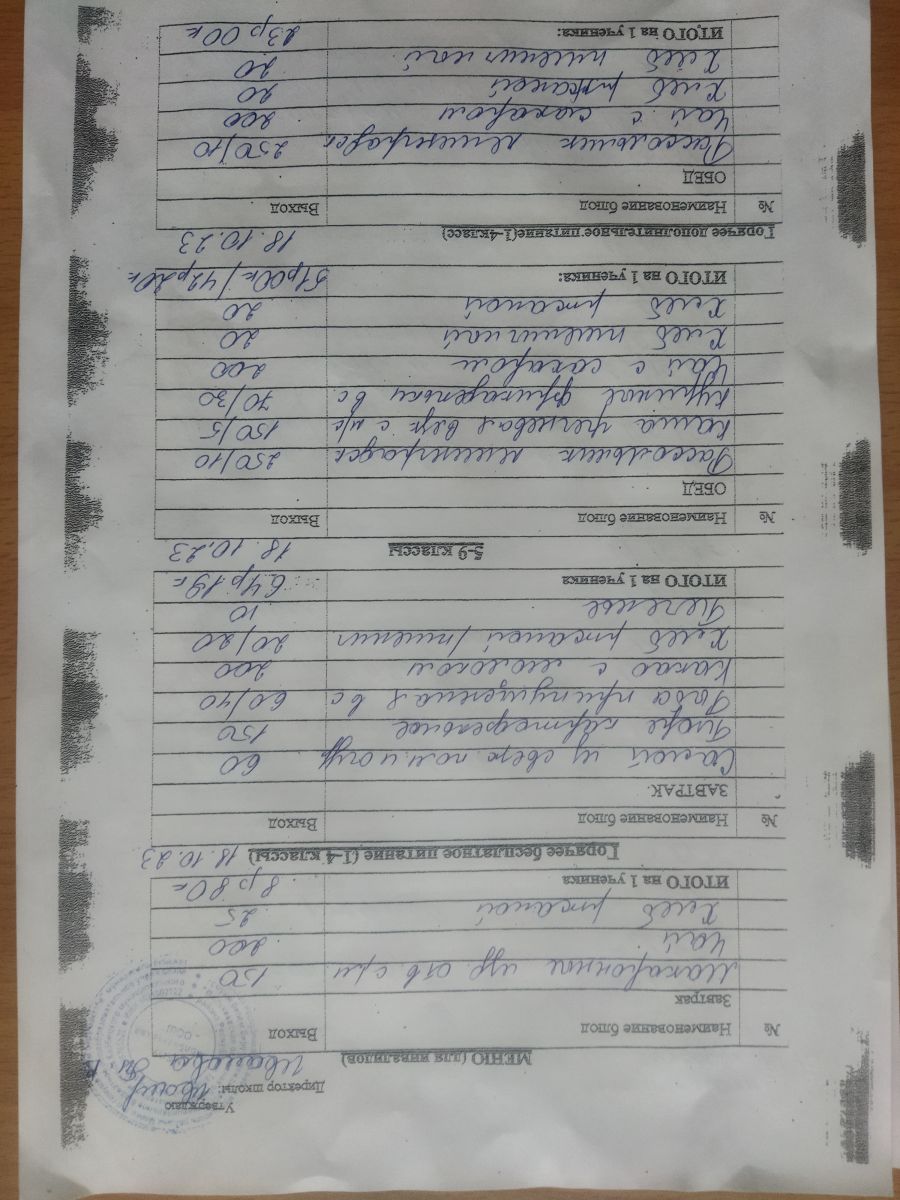 Утверждаю
Директор школы:
Иванова
МЕНЮ (для инвалидов)
№ Наименование блюд Выход
Завтрак
Макаронные изд. отв с/м 150
Чай 200
Хлеб ржаной 25
ИТОГО на 1 ученика 8р80к
Горячее бесплатное питание (1-4 классы) 18.10.23
№ Наименование блюд Выход
ЗАВТРАК.
Салат из свеж пом и огур 60
Пюре картофельное 150
Рыба припущенная в с 60/40
Какао с молоком 200
Хлеб ржаной/пшенич 20/20
Печенье 10
ИТОГО на 1 ученика 64р19к
5-9 классы 18.10.23
№ Наименование блюд Выход
ОБЕД
Рассольник ленинградск 250/10
Каша гречневая вязк с м/с 150/5
Куриные фрикадельки в с. 70/30
Чай с сахаром 200
Хлеб пшеничный 20
Хлеб ржаной 20
ИТОГО на 1 ученика: 51р00к/42р20к
Горячее дополнительное питание(1-4класс) 18.10.23
№ Наименование блюд Выход
ОБЕД
Рассольник ленинградск 250/10
Чай с сахаром 200
Хлеб ржаной 20
Хлеб пшеничный 20
ИТОГО на 1 ученика: 23р00к